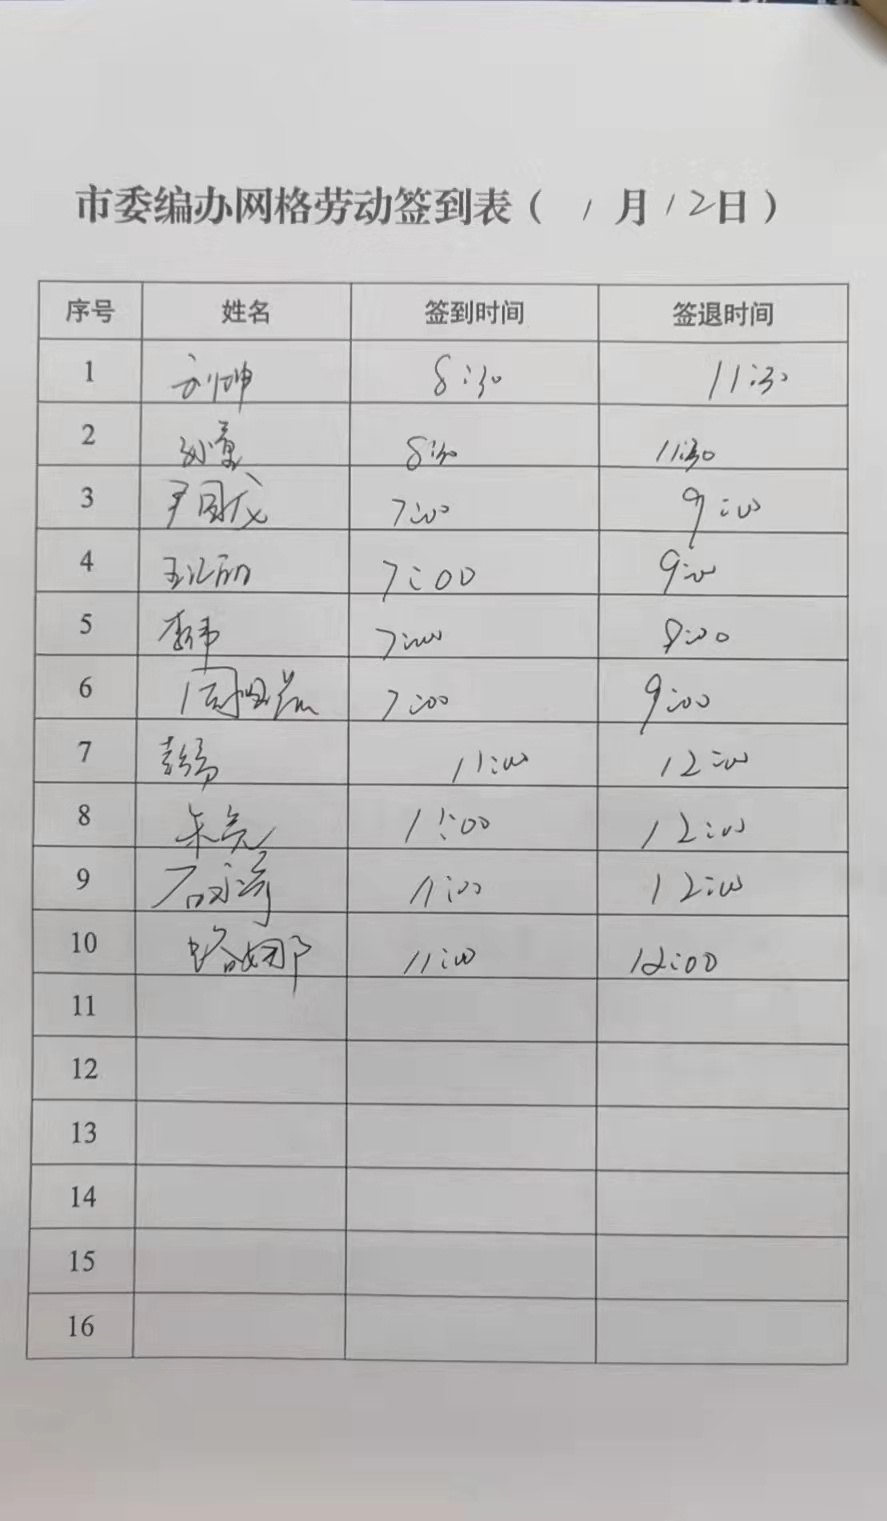 市委编办网格劳动签到表（1月12日）
序号 姓名 签到时间 签退时间
1 刘坤 8:30 11:30
2 8:30 11:30
3 尹国茂 7:00 9:00
4 7:00 9:00
5 李韦 7:00 9:00
6 7:00 9:00
7 11:00 12:00
8 朱亮 11:00 12:00
9 11:00 12:00
10 路娜 11:00 12:00
11
12
13
14
15
16